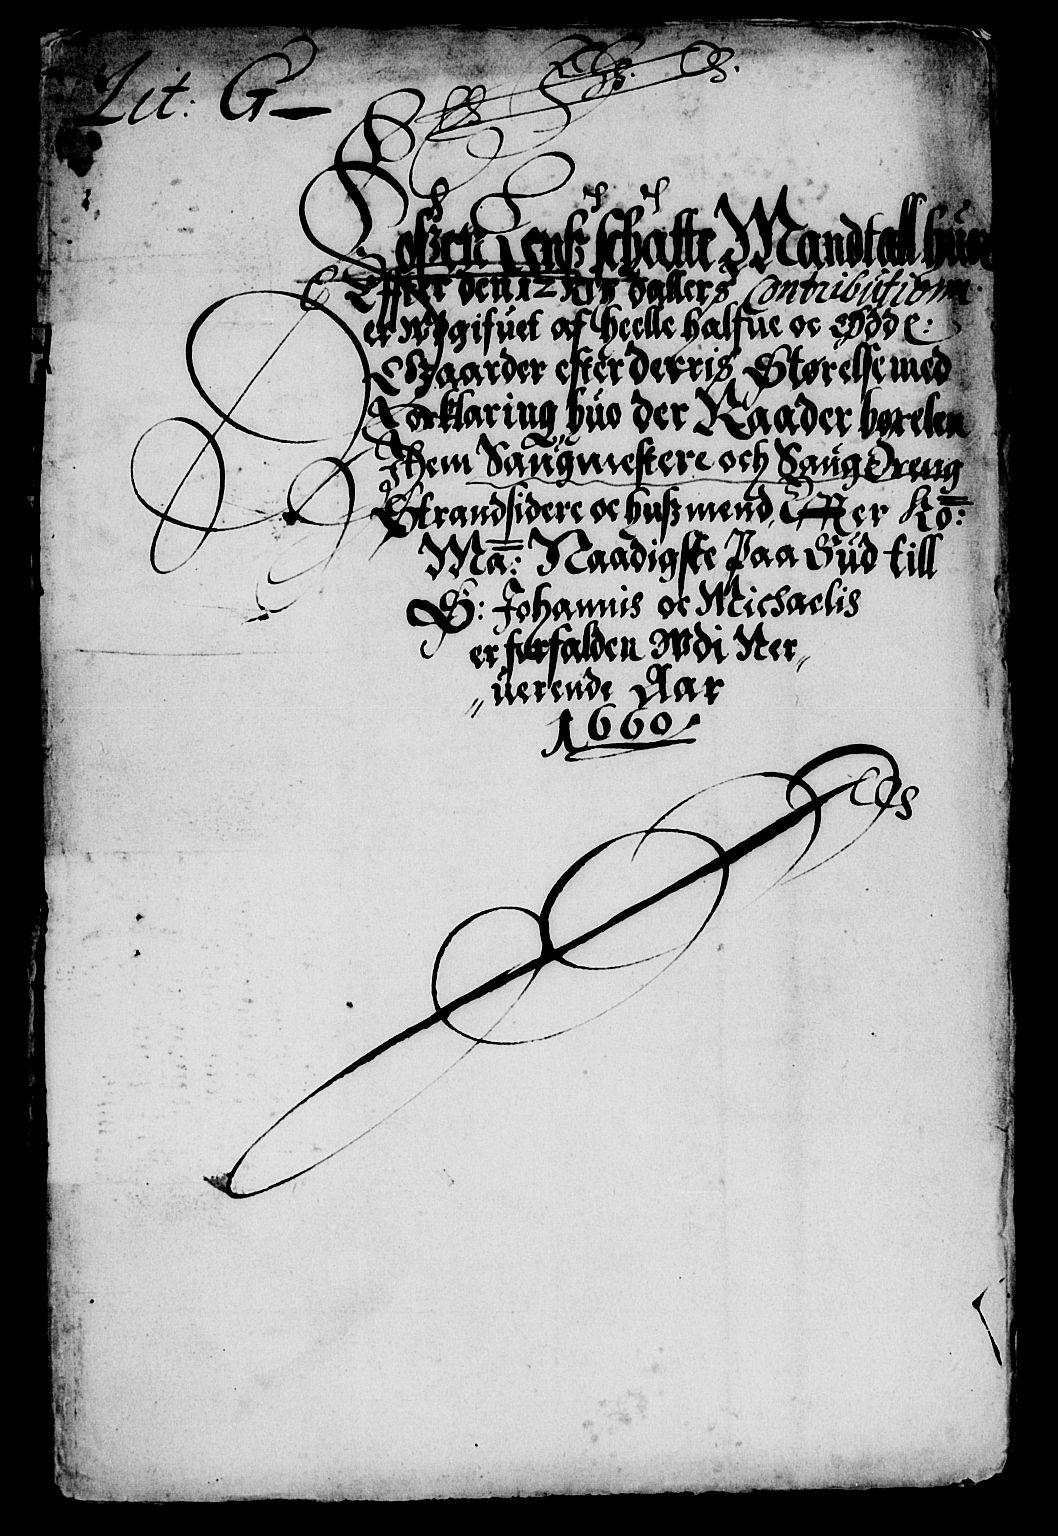 Lit: G
Mandtall huor
Effter den 12 Rix dallers Contributionn
er Wdgifuet af heelle halfue oc Ødde:
Gaarder efter derris Størelse med
Forklaring huo der Raader børelen
Jthem Saugmestere och Saug Dreng
Strandsidere oc husmend, Ko:
Ma: Naadigste Paa Bud till
S: Johannis oc Michaelis
er forfalden Wdi Ner„
„uerende Aar
1660